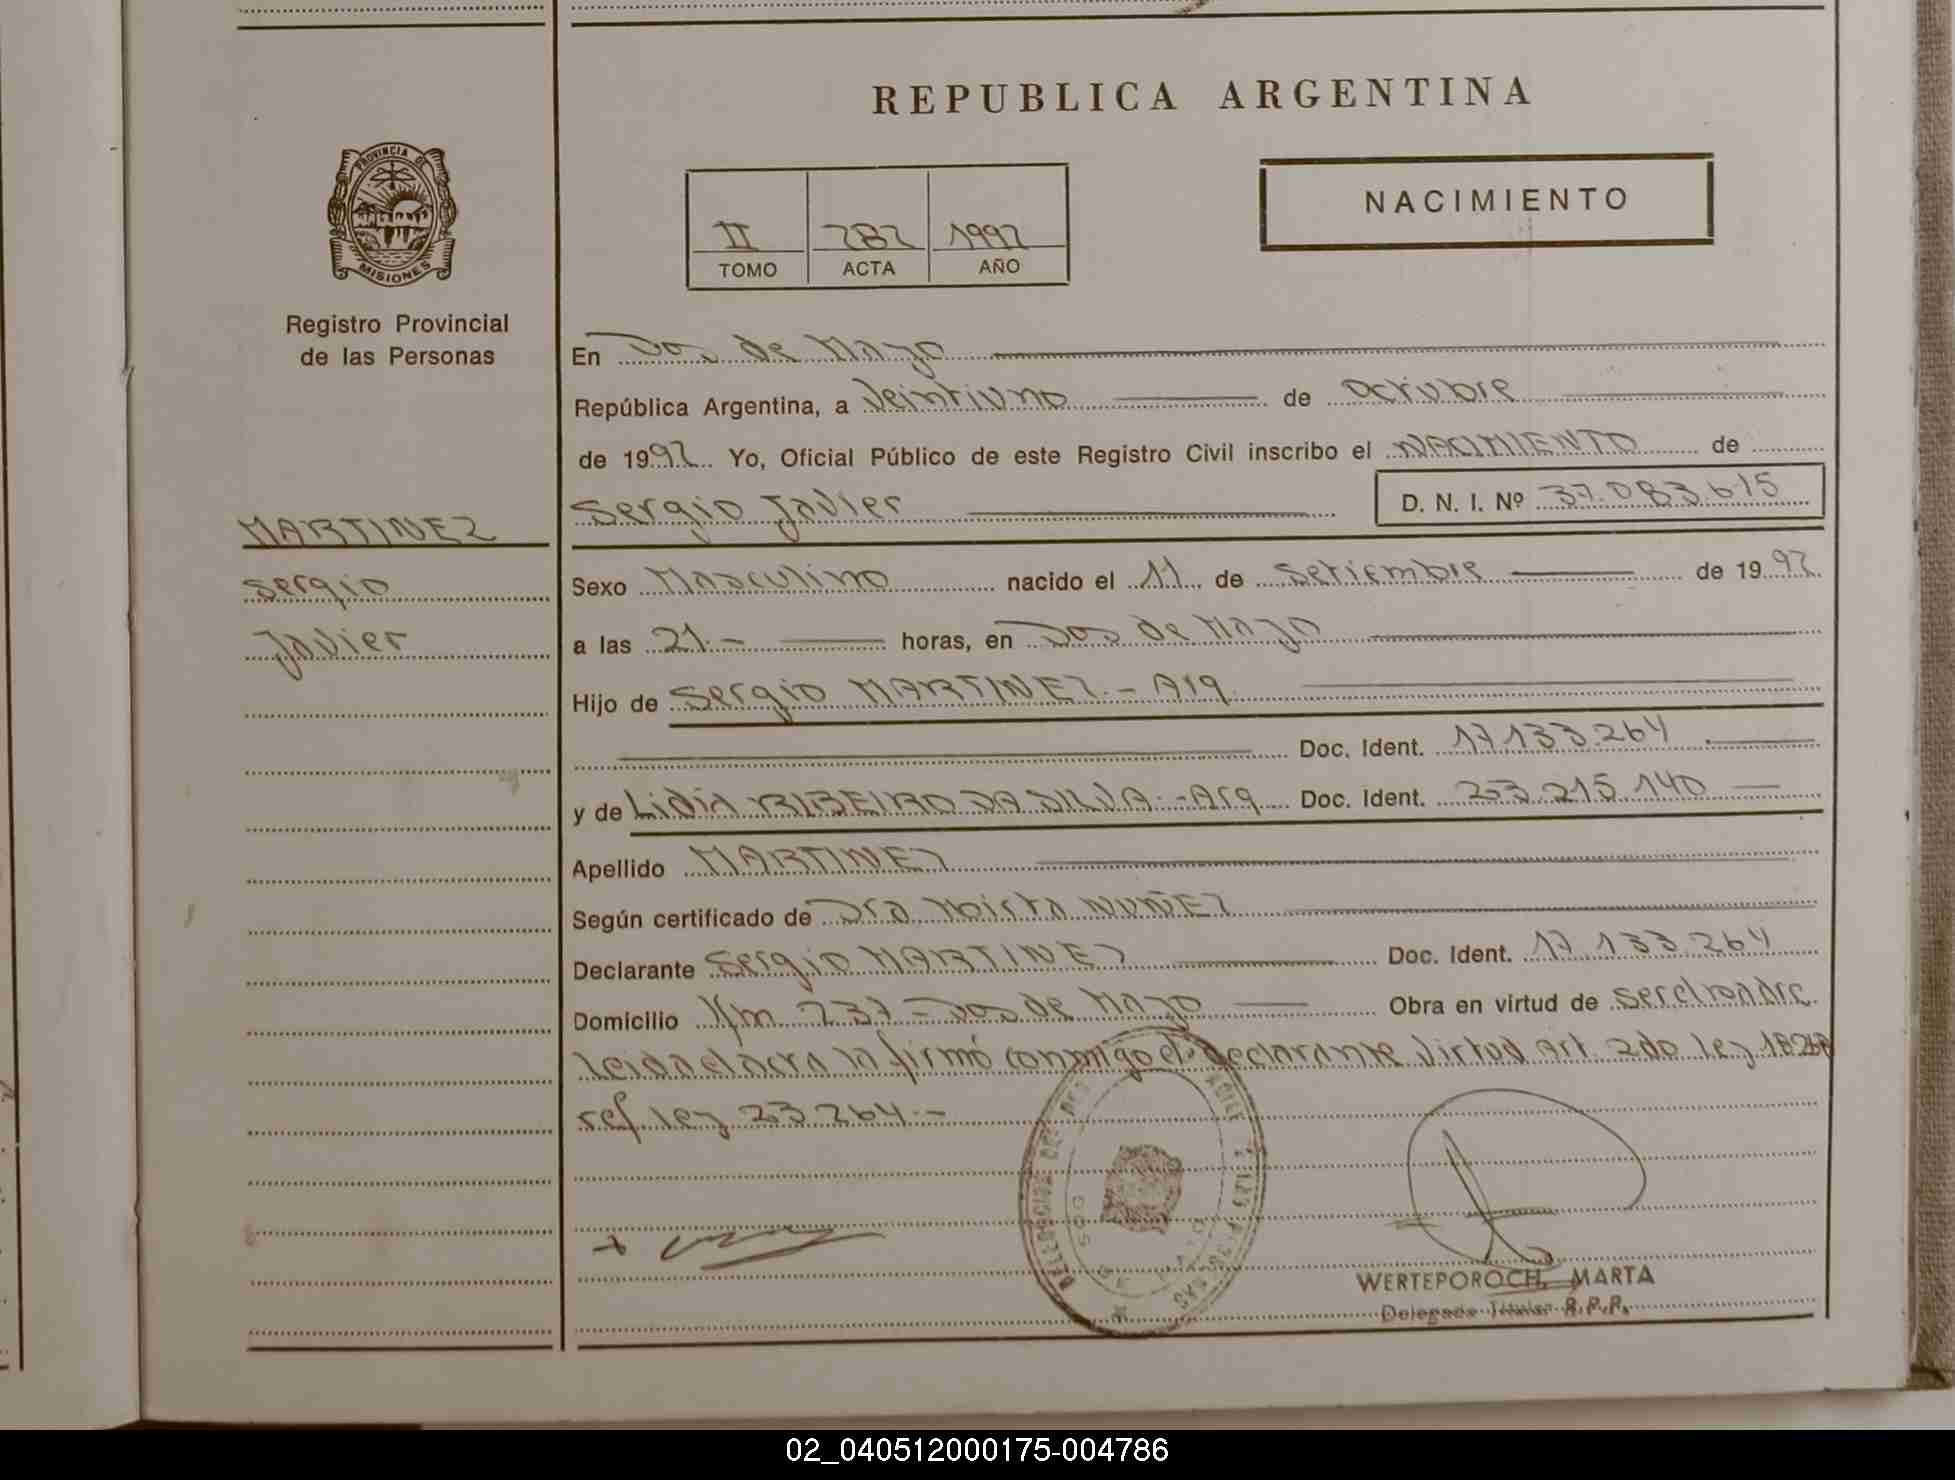 REPUBLICA ARGENTINA
PROVINCIA DE
MISIONES
Registro Provincial
de las Personas
II 282 1992
TOMO ACTA AÑO
NACIMIENTO
En Dos de Mayo
República Argentina, a Veintiuno de octubre
de 1992 Yo, Oficial Público de este Registro Civil inscribo el NACIMIENTO de
Sergio Javier D. N. I. Nº 37.083.615
MARTINEZ
Sergio
Javier
Sexo Masculino nacido el 11 de Setiembre de 1992
a las 21.- horas, en Dos de Mayo
Hijo de Sergio MARTINEZ.- Arg.
Doc. Ident. 17.133.264
y de Lidia RIBEIRO DA SILVA.-Arg Doc. Ident. 23.215.140
Apellido MARTINEZ
Según certificado de Dra NUÑEZ
Declarante Sergio MARTINEZ Doc. Ident. 17.133.264
Domicilio Km 237 - Dos de Mayo Obra en virtud de ser el padre
Leida el acta la firmó conmigo el declarante Virtud Art. 2do Ley 18248
ref. ley 23.264.-
WERTEPOROCH, MARTA
Delegada Titular R.P.P.
02_040512000175-004786